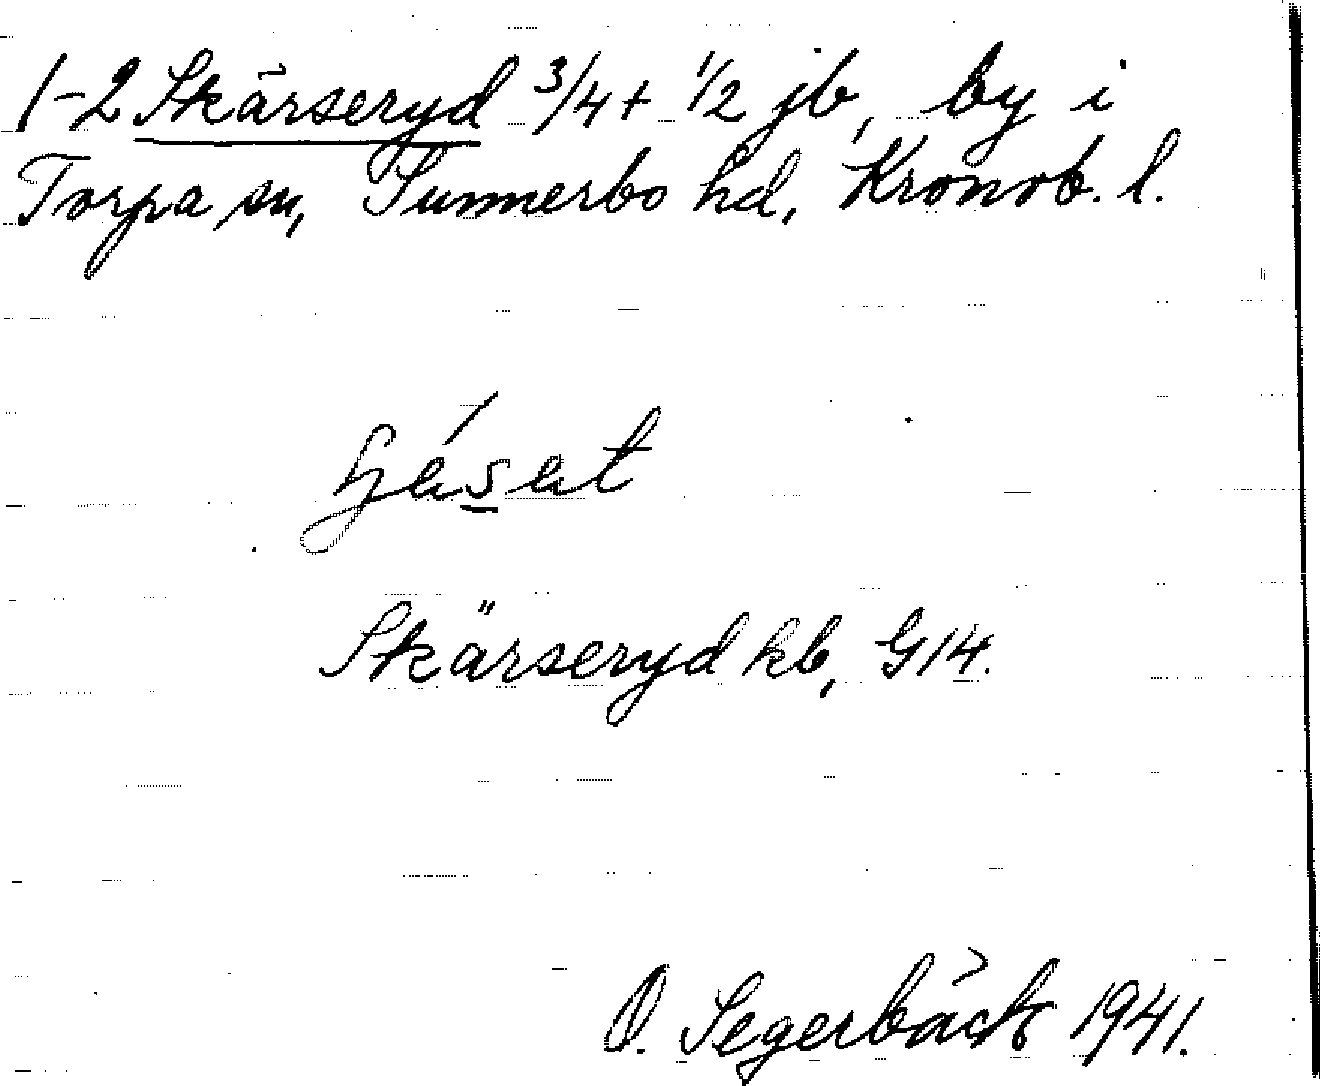 1-2 Skärseryd 3/4 + 1/2 jb, by i
Torpa sn, Sunnerbo hd, Kronob. l.
Skärseryd kb, G14.
O. Segerbäck 1941.